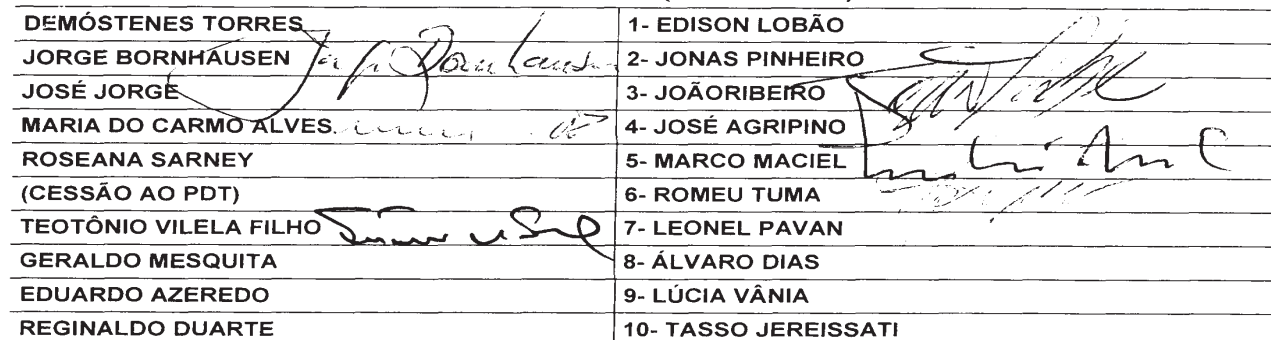 DEMÓSTENES TORRES 1- EDISON LOBÃO
JORGE BORNHAUSEN Jorge Bornhausen 2- JONAS PINHEIRO
JOSÉ JORGE 3- JOÃORIBEIRO
MARIA DO CARMO ALVES 4- JOSÉ AGRIPINO
ROSEANA SARNEY 5- MARCO MACIEL
(CESSÃO AO PDT) 6- ROMEU TUMA
TEOTÔNIO VILELA FILHO 7- LEONEL PAVAN
GERALDO MESQUITA 8- ÁLVARO DIAS
EDUARDO AZEREDO 9- LÚCIA VÂNIA
REGINALDO DUARTE 10- TASSO JEREISSATI